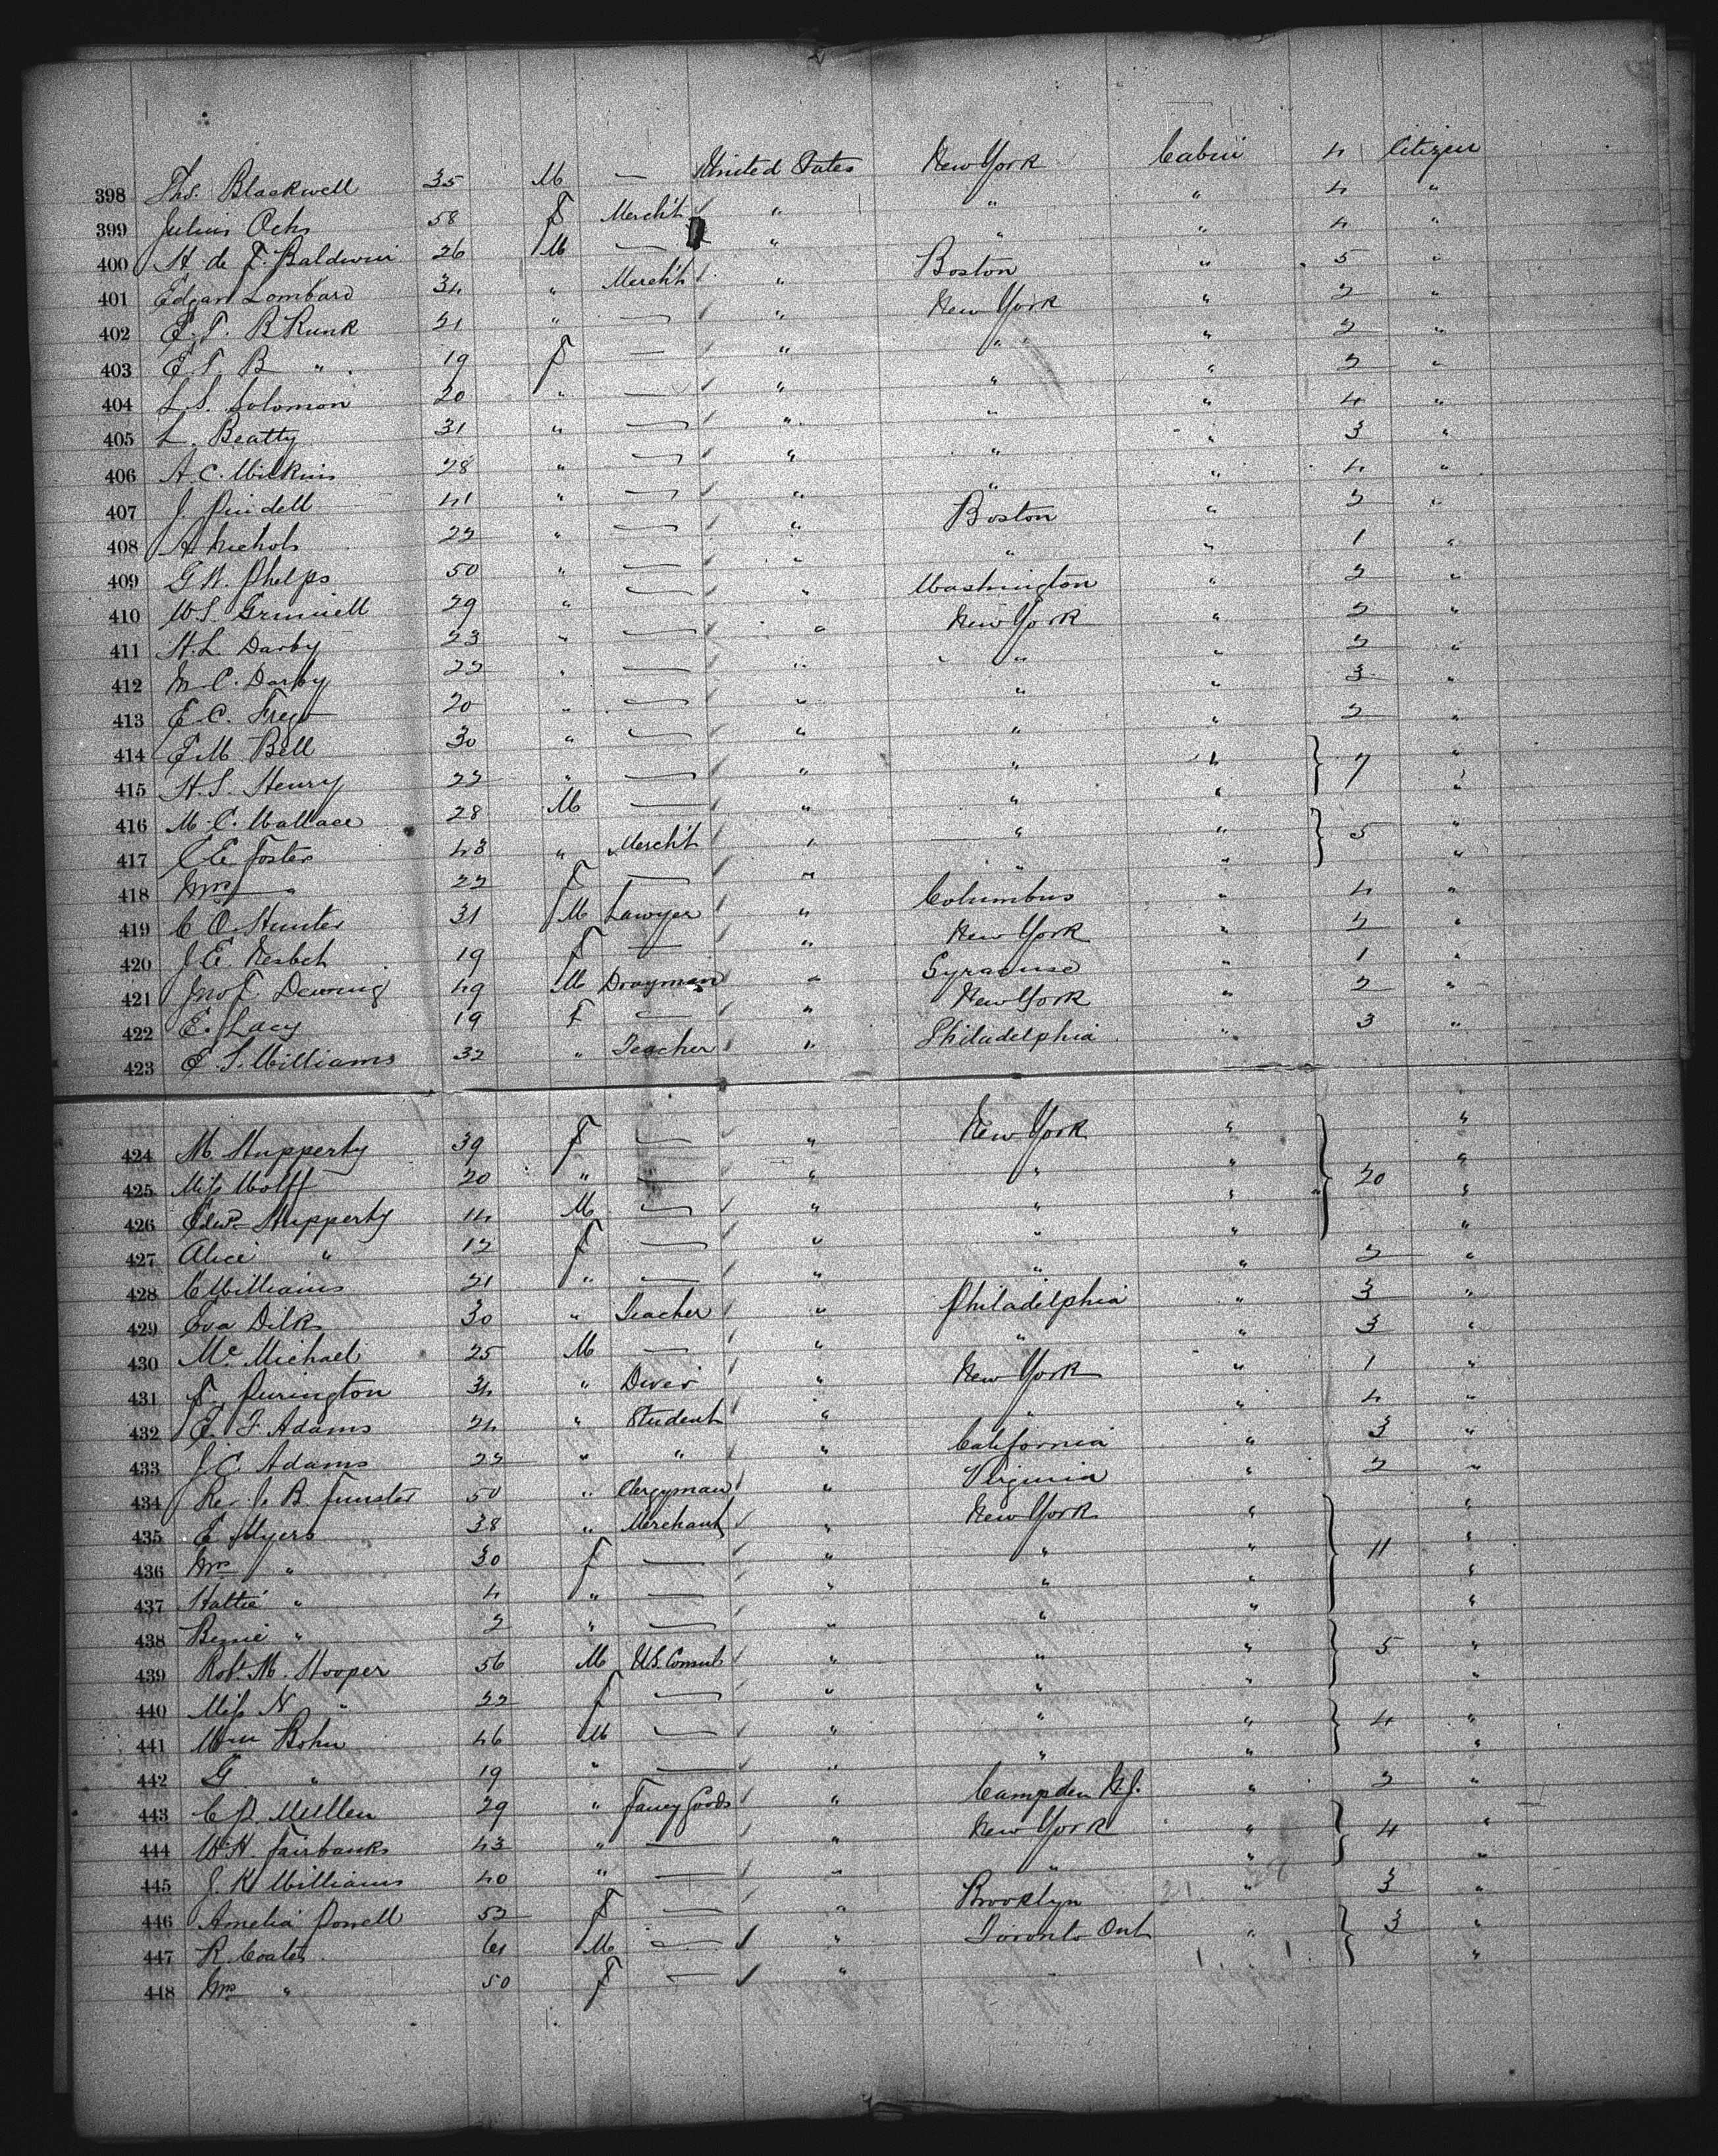 398 Thos. Blackwell 35 M — United States New York Cabin 4 Citizen
399 Julius Ochs 58 F Mercht " " " 4 "
400 H. de F. Baldwin 26 M — " " " 4 "
401 Edgar Lombard 34 " Mercht " Boston " 5 "
402 E. T. R Runk 21 " — " New York " 2 "
403 E. T. B " 19 F — " " " 2 "
404 L. S. Solomon 20 " — " " " 2 "
405 L. Beatty 31 " — " " " 4 "
406 A. C. Wilkins 28 " — " " " 3 "
407 J. Pindell 41 " — " " " 4 "
408 A. Nichols 22 " — " Boston " 2 "
409 G. W. Phelps 50 " — " " " 1 "
410 W. S. Grinnell 29 " — " Washington " 2 "
411 H. L. Darby 23 " — " New York " 2 "
412 M. C. Darby 22 " — " " " 2 "
413 E. C. 20 " — " " " 3 "
414 E. M. Bell 30 " — " " " 2 "
415 H. S. Henry 22 " — " " " 7 "
416 M. C. Wallace 28 M — " " " "
417 C. E. Foster 43 " Mercht " " " 5 "
418 Mrs " 22 F — " " " "
419 C. O. Hunter 31 M Lawyer " Columbus " 4 "
420 J. E. 19 F — " New York " 2 "
421 Jno F. Deming 49 M Drayman " Syracuse " 1 "
422 E. Lacy 19 F — " New York " 2 "
423 E. S. Williams 32 " Teacher " Philadelphia " 3 "
424 M. Hupperty 39 F — " New York " "
425 Miss Wolff 20 " — " " " 20 "
426 Edwd. Hupperty 14 M — " " " "
427 Alice " 12 F — " " " "
428 C Williams 21 " — " " " 2 "
429 Eva Dilks 30 " Teacher " Philadelphia " 3 "
430 Mc. Michael 25 M — " " " 3 "
431 F. Purington 34 " Diver " New York " 1 "
432 E. F. Adams 24 " Student " " " 4 "
433 J. C. Adams 22 " " " California " 3 "
434 Rev. J. B. Funster 50 " Clergyman " Virginia " 2 "
435 E. Myers 38 " Merchant " New York " "
436 Mrs " 30 F — " " " 11 "
437 Hattie " 4 " — " " " "
438 Bessie " 2 " — " " " "
439 Robt. M. Hooper 56 M U.S. Consul " " " 5 "
440 Miss N " 22 F — " " " "
441 Wm Bohn 46 M — " " " 4 "
442 G. " 19 " — " " " "
443 C. P. Mullen 29 " Fancy Goods " Campden N.J. " 2 "
444 W. H. Fairbanks 43 " — " New York " 4 "
445 J. K. Williams 40 " — " " " "
446 Amelia Powell 52 F — " Brooklyn " 3 "
447 R. Coates 61 M — " Toronto Ont " 3 "
448 Mrs " 50 F — " "